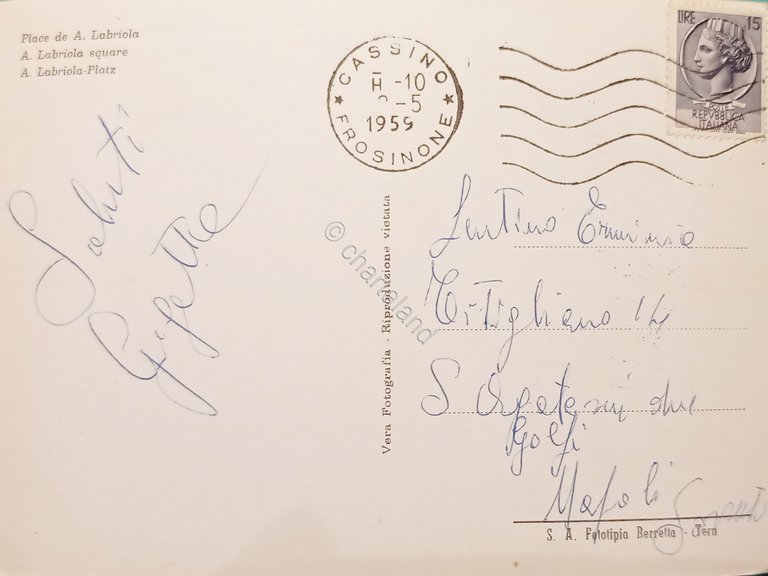 Place de A. Labriola
A. Labriola square
A. Labriola-Platz
CASSINO
H -10
-5
1959
FROSINONE
LIRE 15
REPVBBLICA
ITALIANA
Saluti
Gigetta
Vera Fotografia - Riproduzione vietata
© chartaland
Erminia
Titigliano 14
S Agata sui due
Golfi
Napoli
S. A. Fototipia Berretta - Terni